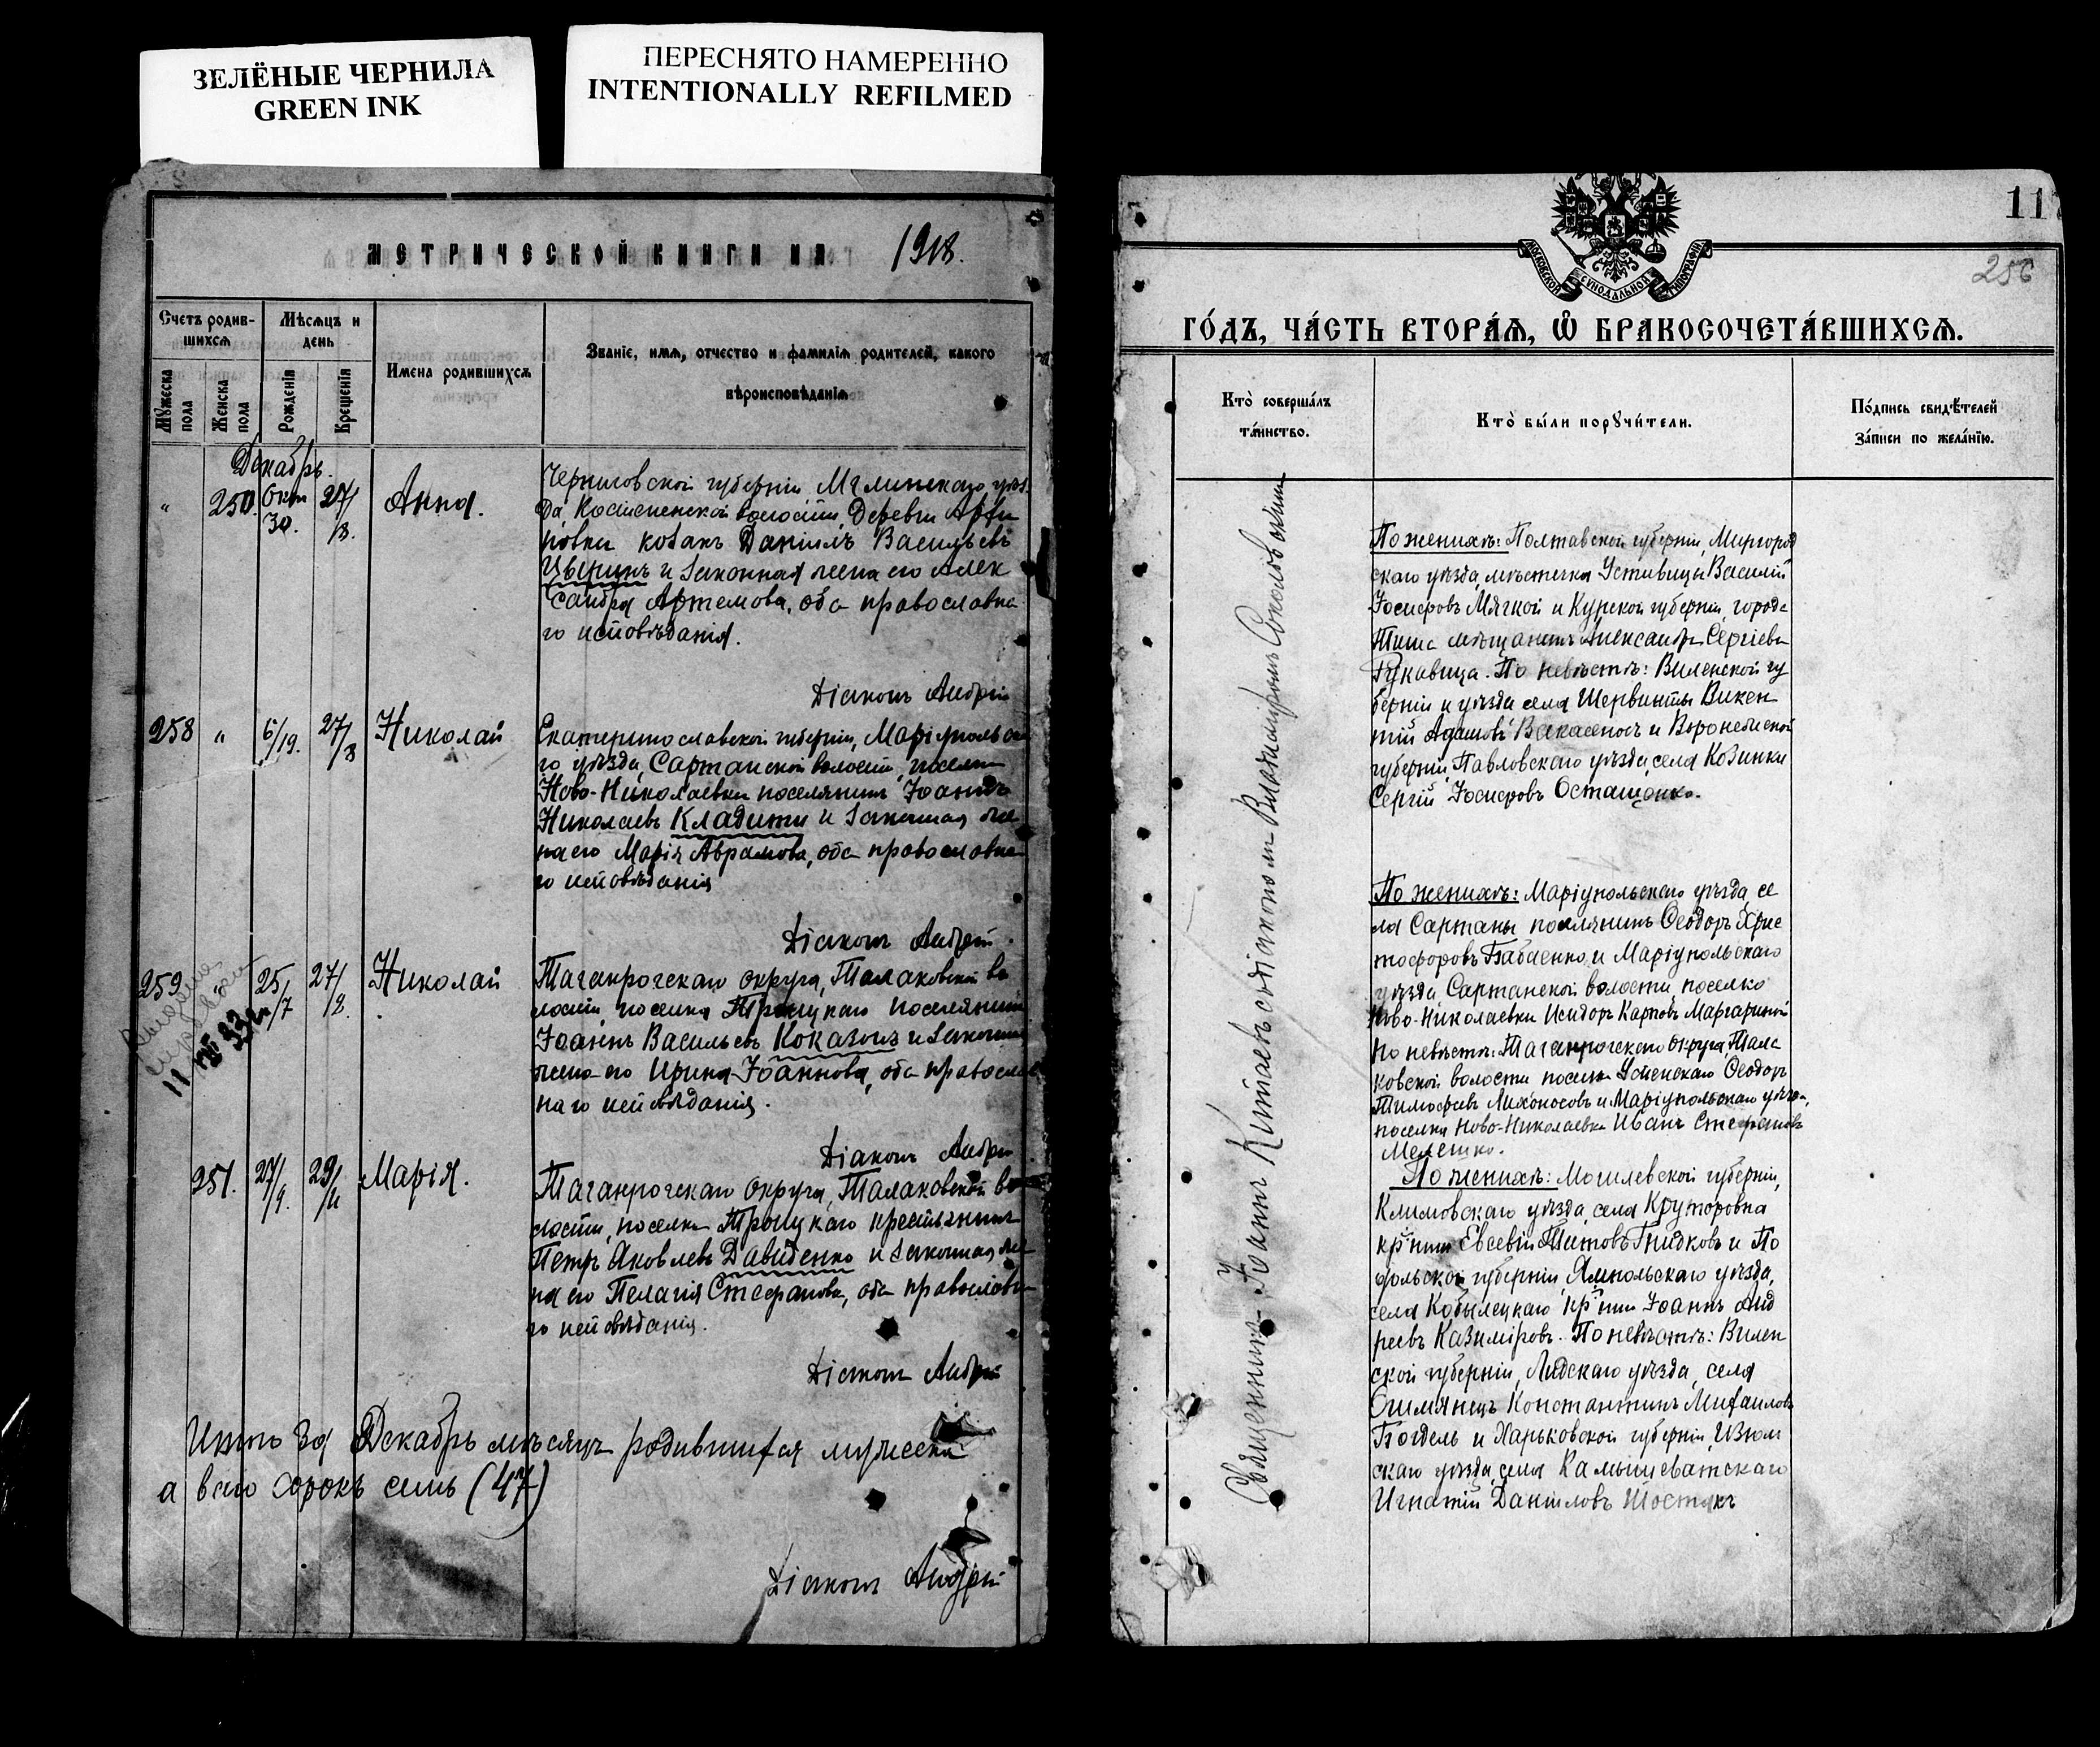 ЗЕЛЁНЫЕ ЧЕРНИЛА
GREEN INK
ПЕРЕСНЯТО НАМЕРЕННО
INTENTIONALLY REFILMED
МЕТРИЧЕСКОЙ КНИГИ НА 1918.
Счетъ родив-
шихсѧ
Мѣсѧцъ и
день
Мꙋжеска пола
Женска пола
Рожденїѧ
Крещенїѧ
Имена родившихсѧ
Званїе, имѧ, отчество и фамилїѧ родителей, какого
вѣроисповѣданїѧ
Декабрь.
" 250. Окт 30. 27/8. Анна.
Черниговской губерніи, Мглинскаго уѣз
да, волости, Деревни
козакъ Даніилъ Васильевъ
и законная жена его Алек
сандра Артемова, оба православна
го исповѣданія.
Діаконъ Андрей
258 " 6/19. 27/8 Николай
Екатеринославской губерніи, Маріупольска
го уѣзда, Сартанской волости, поселка
Ново-Николаевки поселянинъ Іоаннъ
Николаевъ Кладити и законная же
на его Марія Аврамова, оба православна
го исповѣданія
Діаконъ Андрей.
259 " 25/7 27/8. Николай
Таганрогскаго округа, Талаковской во
лости, поселка Троицкаго поселянинъ
Іоаннъ Васильевъ Коказіи и законная
жена его Ирина Іоаннова, оба православ
наго исповѣданія.
Діаконъ Андрей
251. 27/9. 29/11 Марія.
Таганрогскаго округа, Талаковской во
лости, поселка Троицкаго крестьянинъ
Петръ Яковлевъ Давиденко и законная же
на его Пелагія Стефанова, оба православна
го исповѣданія.
Діаконъ Андрей
Итого за Декабрь мѣсяцъ родившихся мужеска
а всего сорокъ семь (47)
Діаконъ Андрей
11
256
МОСКОВСКОЙ СѴНОДАЛЬНОЙ ТИПОГРАФІИ
ГО́ДЪ, ЧА́СТЬ ВТОРА́Ѧ, Ѽ БРАКОСОЧЕТА́ВШИХСѦ.
Кто̀ соверша́лъ
та́инство.
Кто̀ бы́ли порꙋчи́тели.
По́дпись свидѣ́телей
за́писи по жела́нїю.
Священникъ Іоаннъ Китаевъ съ діакономъ Владиміромъ Соколовскимъ
По женихѣ: Полтавской губерніи, Миргород
скаго уѣзда, мѣстечка Устивицы Василій
Іосифовъ Мягкой и Курской губерніи, города
мѣщанинъ Александръ Сергіевъ
Рукавица. По невѣстѣ: Виленской гу
берніи и уѣзда села Шервинты Викен
тій Адамовъ и Воронежской
губерніи, Павловскаго уѣзда, села Козинки
Сергій Іосифовъ Осташенко.
По женихѣ: Маріупольскаго уѣзда, се
ла Сартаны поселянинъ Ѳеодоръ Хрис
тофоровъ Бабаенко и Маріупольскаго
уѣзда, Сартанской волости, поселко
Ново-Николаевки Исидоръ Карповъ Маргариной
По невѣстѣ: Таганрогскаго округа Тала
ковской волости поселка Успенскаго Ѳеодоръ
Тимоѳеевъ Лихоносовъ и Маріупольскаго уѣзда,
поселка Ново-Николаевки Иванъ Стефановъ
Мелешко.
По женихѣ: Могилевской губерніи,
Климовскаго уѣзда, села
кр-нинъ Евсевій Титовъ Гнидковъ и По
дольской губерніи, Ямпольскаго уѣзда,
села Кобылецкаго кр-нинъ Іоаннъ Анд
реевъ Казиміровъ. По невѣстѣ: Вилен
ской губерніи, Лидскаго уѣзда, села
Ошмянецъ Константинъ Михаиловъ
и Харьковской губерніи, Изюм
скаго уѣзда, села Камышеватскаго
Игнатій Даніиловъ Шостакъ